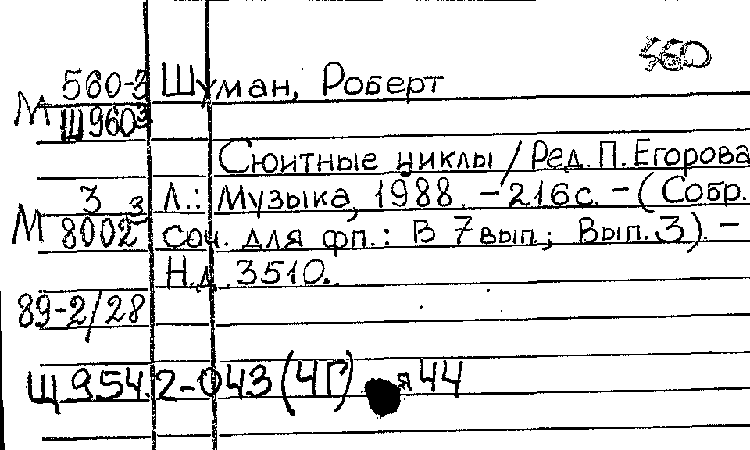 560
560-3 Шуман, Роберт
М Ш960з
Сюитные циклы / Ред. П. Егорова
3 з Л.: Музыка, 1988. - 216с. - (Собр.
М 8002 соч. для фп.: В 7 вып.; Вып. 3) -
Н.д. 3510.
89-2/28
Щ 954.2-043(4Г) я44